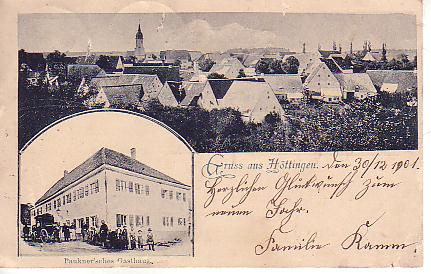 Gruss aus Höttingen. den 30/12 1901.
Herzlichen Glückwunsch zum
neuen Jahr.
Familie Kamm.
Paukner'sches Gasthaus.